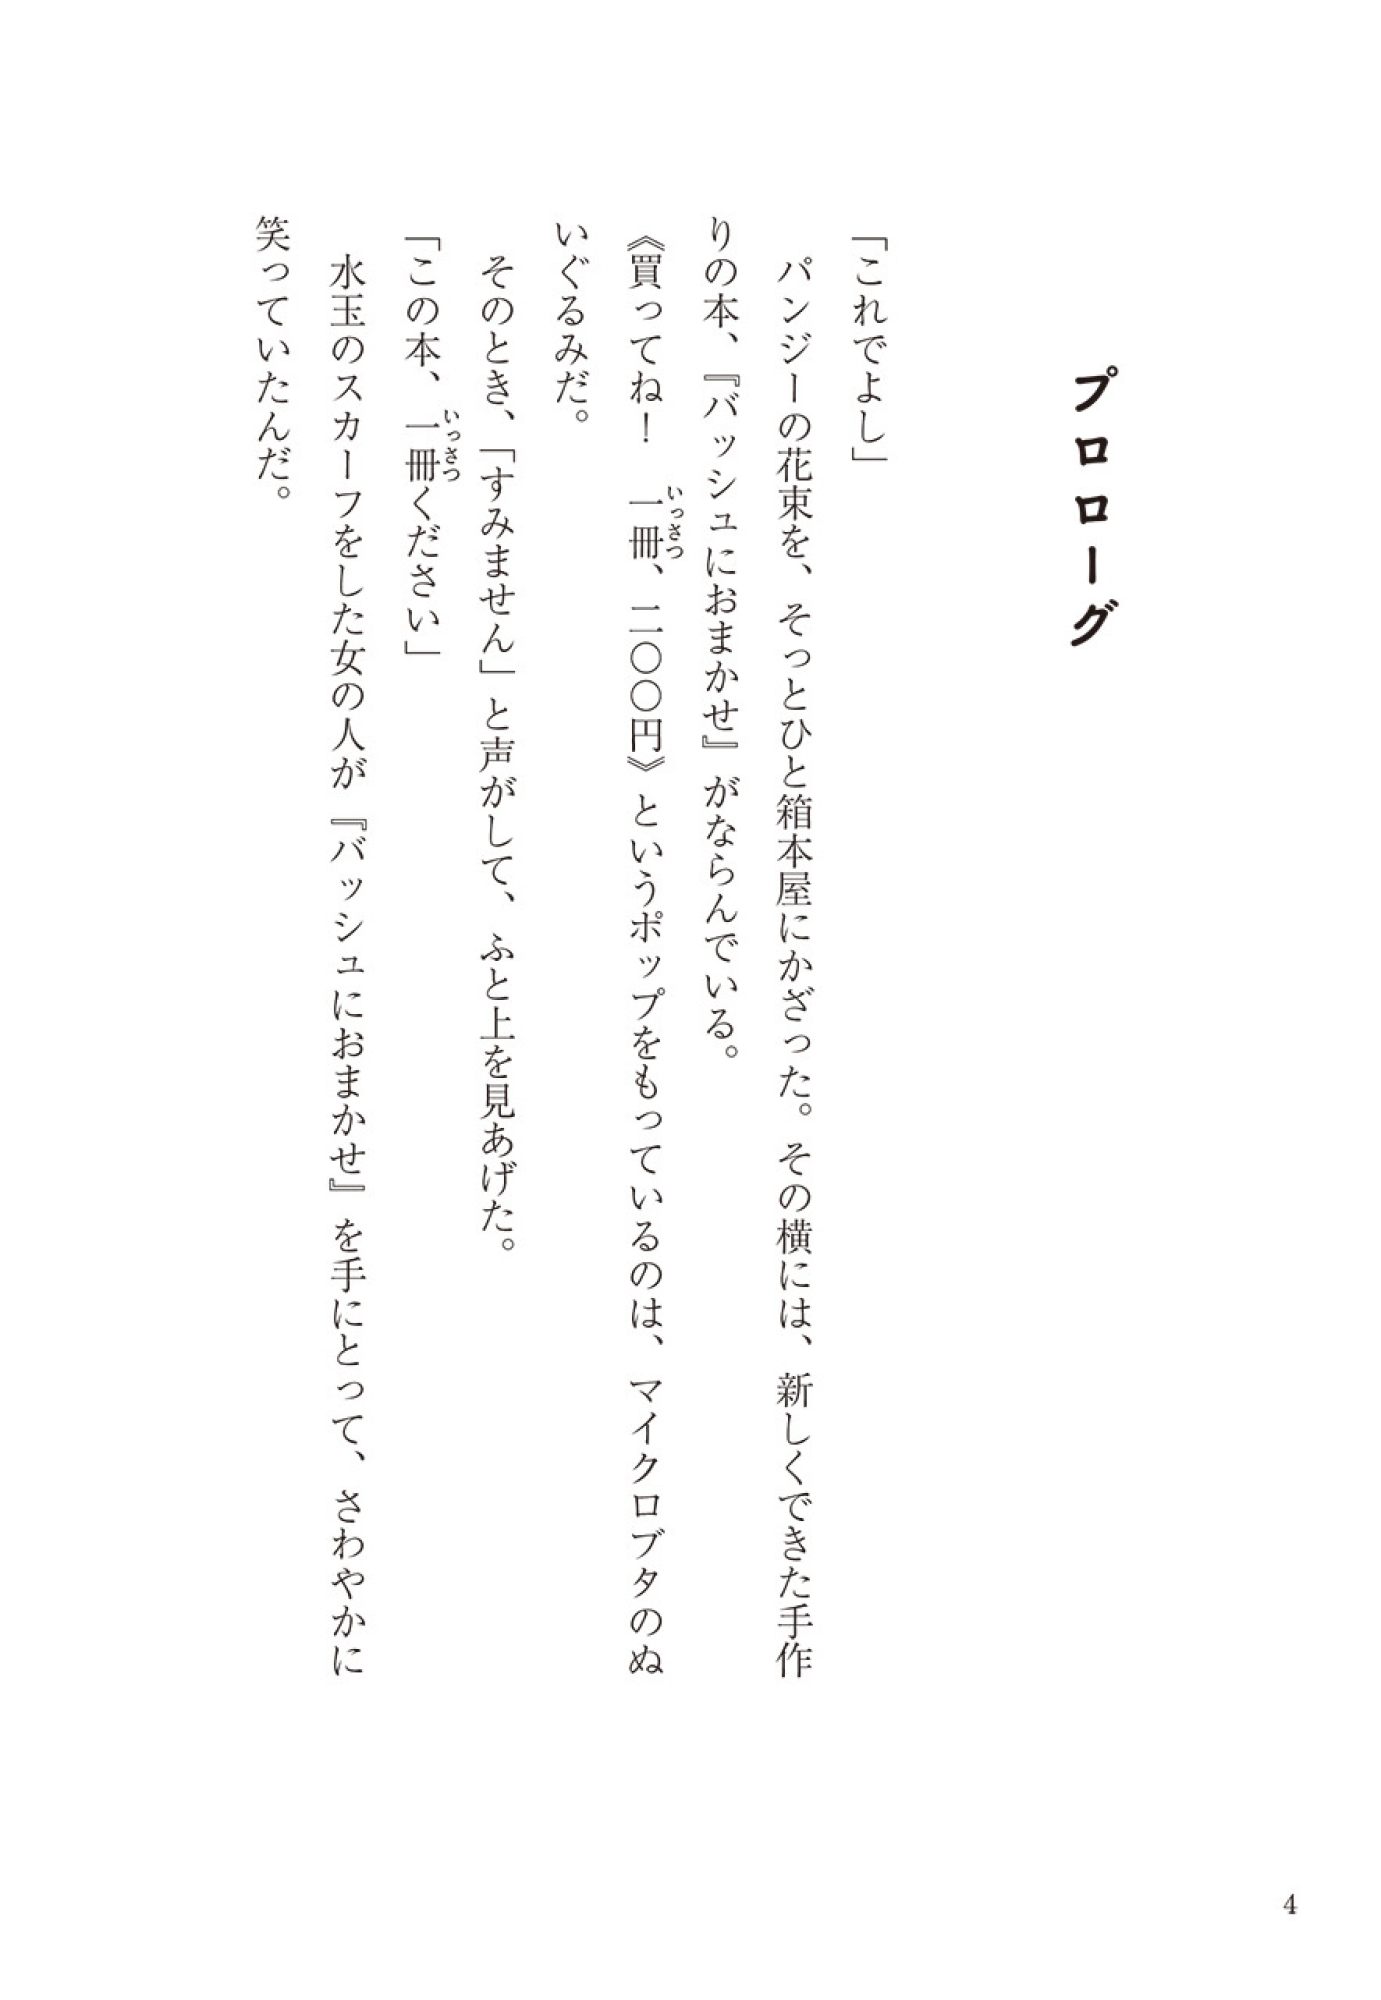 プロローグ
「これでよし」
　パンジーの花束を、そっとひと箱本屋にかざった。その横には、新しくできた手作
りの本、『バッシュにおまかせ』がならんでいる。
《買ってね！　一冊、二〇〇円》というポップをもっているのは、マイクロブタのぬ
いっさつ
いぐるみだ。
　そのとき、「すみません」と声がして、ふと上を見あげた。
「この本、一冊ください」
いっさつ
　水玉のスカーフをした女の人が『バッシュにおまかせ』を手にとって、さわやかに
笑っていたんだ。
4